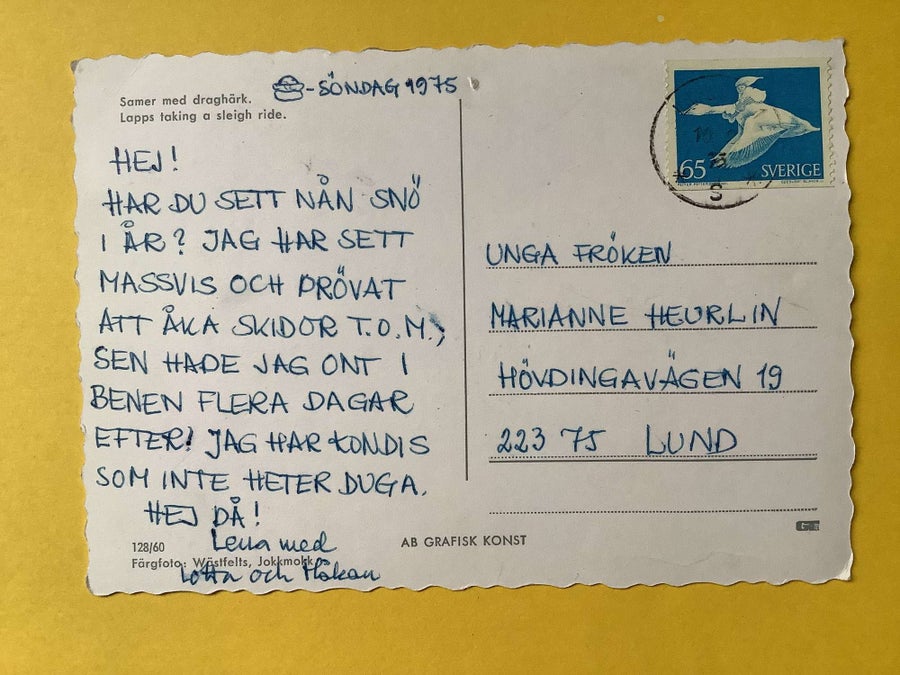 -SÖNDAG 1975
Samer med draghärk.
Lapps taking a sleigh ride.
HEJ!
HAR DU SETT NÅN SNÖ
I ÅR? JAG HAR SETT
MASSVIS OCH PRÖVAT
ATT ÅKA SKIDOR T.O.M.,
SEN HADE JAG ONT I
BENEN FLERA DAGAR
EFTER! JAG HAR KONDIS
SOM INTE HETER DUGA.
HEJ DÅ!
Lena med
Lotta och Håkan
128/60
Färgfoto: Wästfelts, Jokkmokk
AB GRAFISK KONST
65 SVERIGE
UNGA FRÖKEN
MARIANNE HEURLIN
HÖVDINGAVÄGEN 19
223 75 LUND